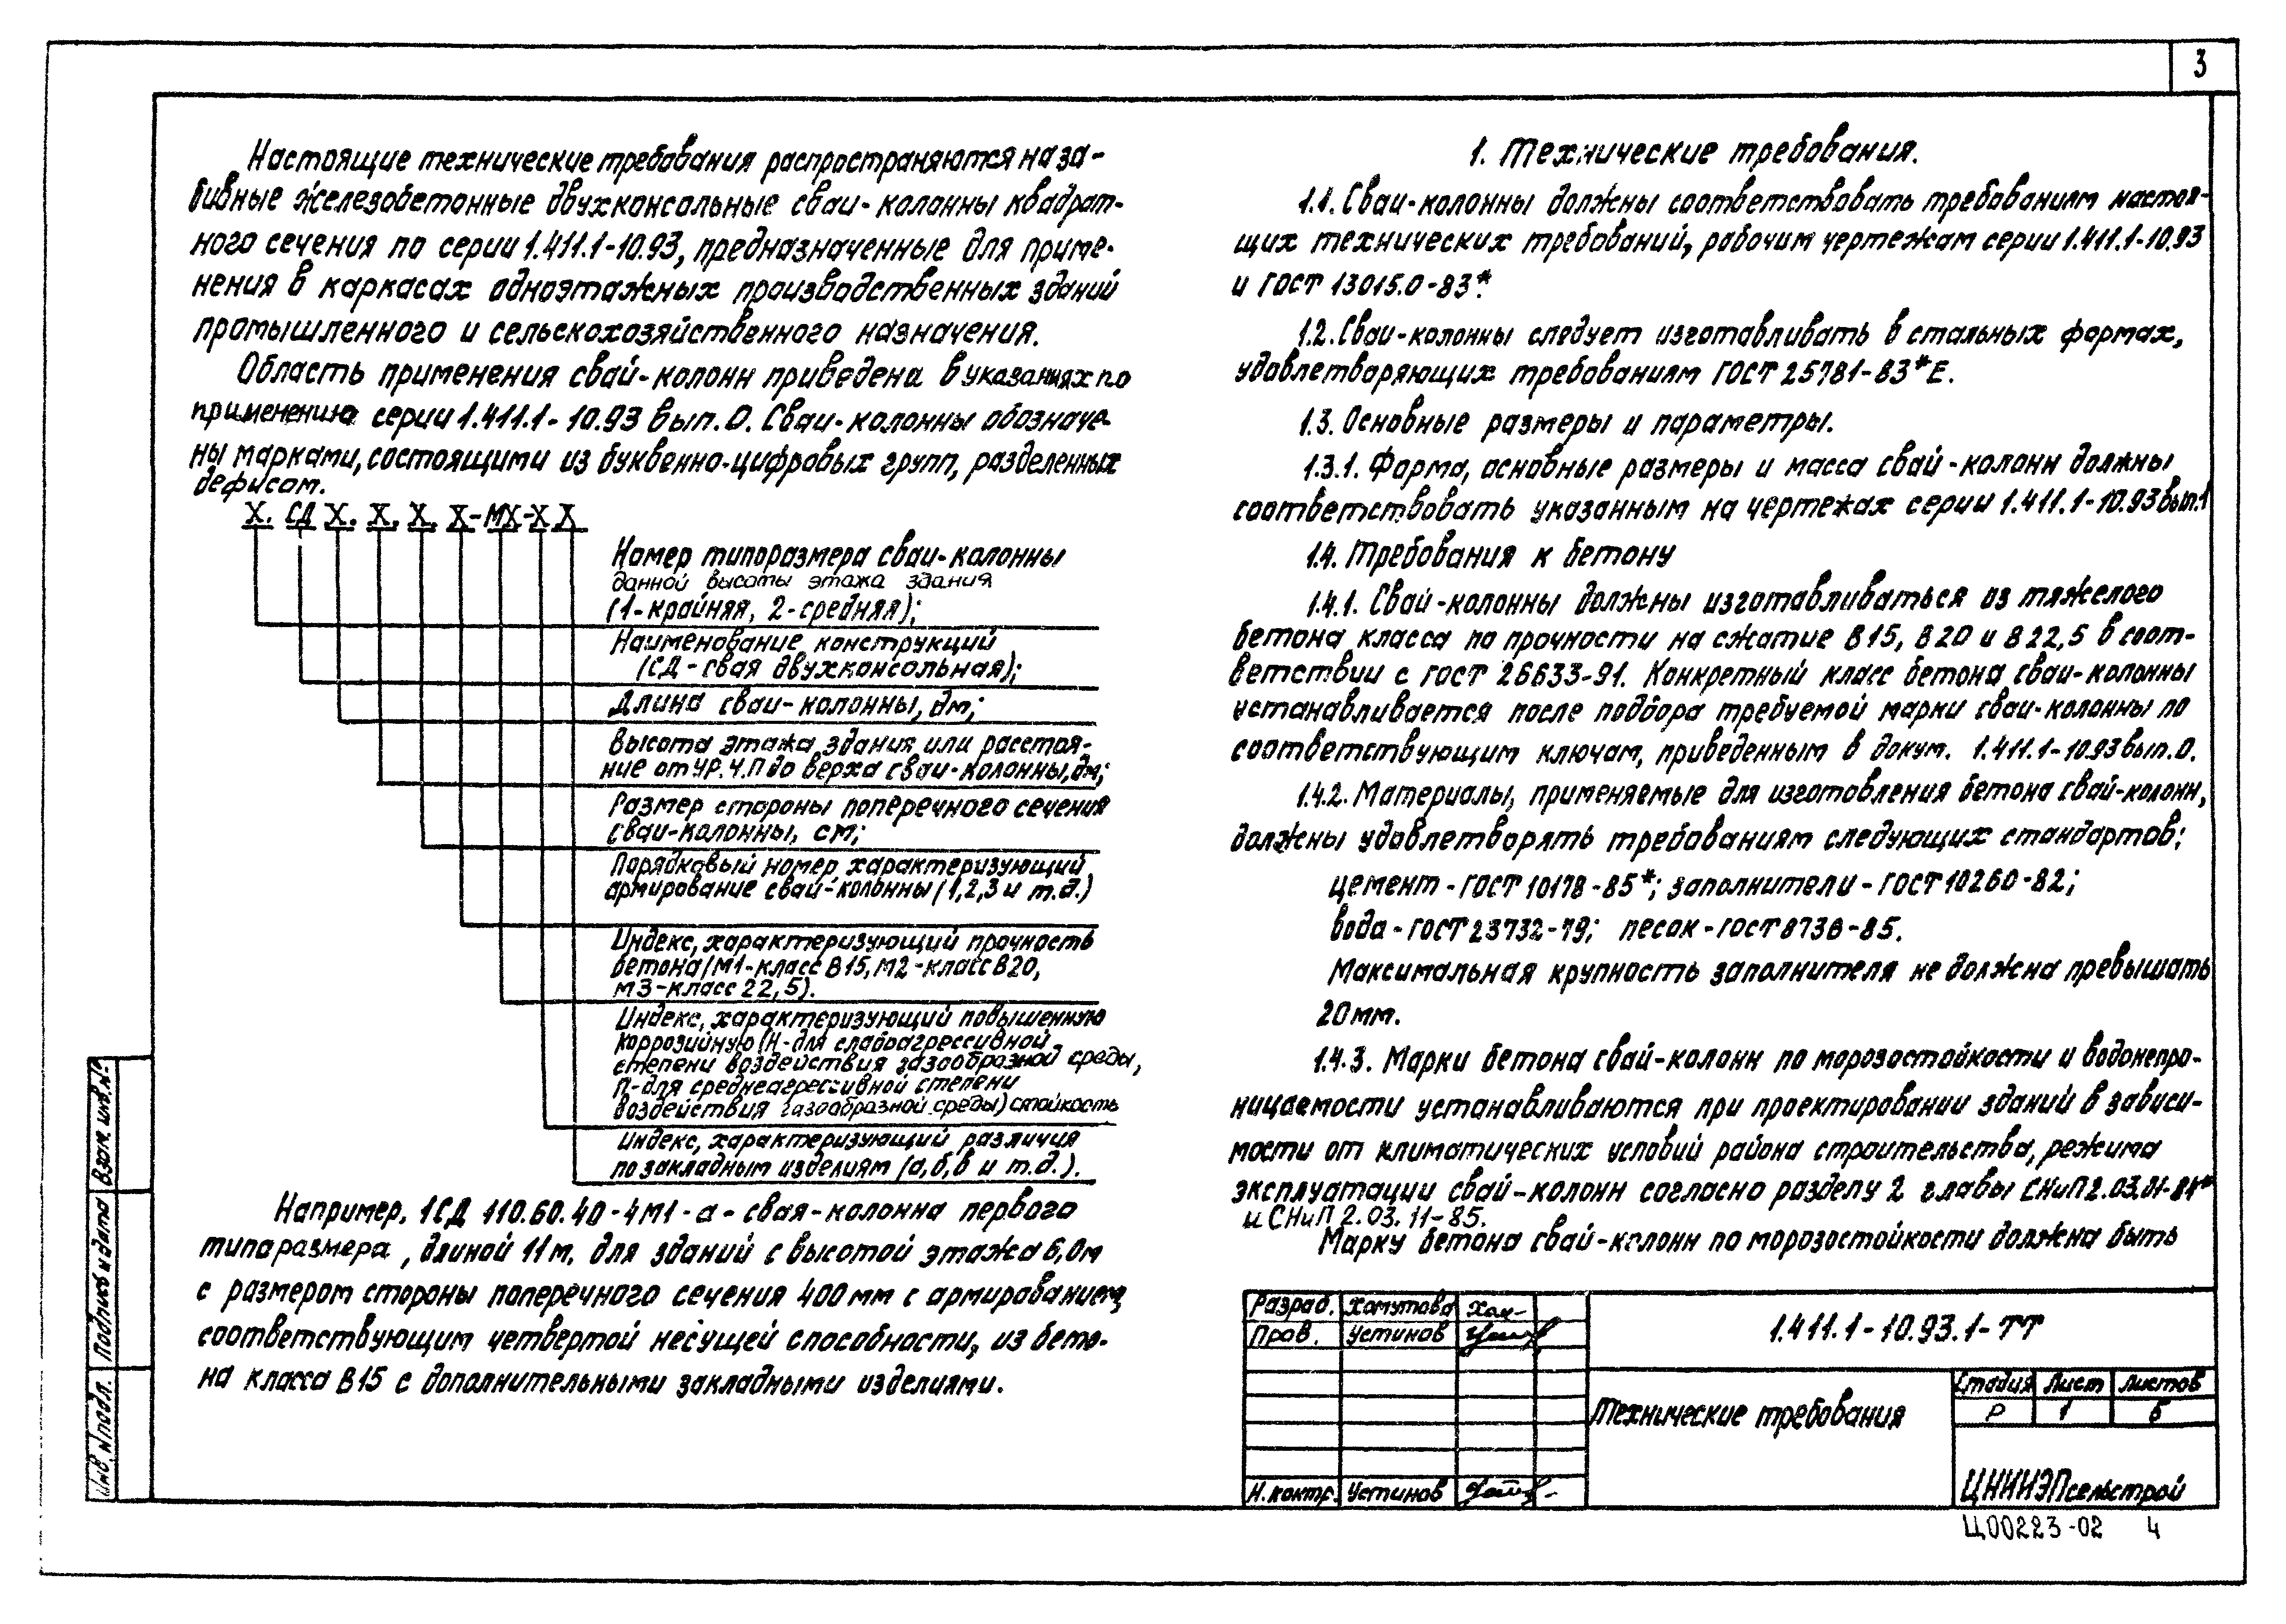 3
Настоящие технические требования распространяются на за-
бивные железобетонные двухконсольные сваи-колонны квадрат-
ного сечения по серии 1.411.1-10.93, предназначенные для приме-
нения в каркасах одноэтажных производственных зданий
промышленного и сельскохозяйственного назначения.
Область применения свай-колонн приведена в указаниях по
применению серии 1.411.1-10.93 вып.0. Сваи-колонны обозначе-
ны марками, состоящими из буквенно-цифровых групп, разделенных
дефисом.
X. СД X. X. X. X-МX-X X
Номер типоразмера сваи-колонны
данной высоты этажа здания
(1-крайняя, 2-средняя);
Наименование конструкций
(СД-свая двухконсольная);
Длина сваи-колонны, дм;
Высота этажа здания или расстоя-
ние от УР.Ч.П до верха сваи-колонны, дм;
Размер стороны поперечного сечения
сваи-колонны, см;
Порядковый номер, характеризующий
армирование свай-колонны (1,2,3 и т.д.)
Индекс, характеризующий прочность
бетона (М1-класс В15, М2-класс В20,
М3-класс 22,5).
Индекс, характеризующий повышенную
коррозийную (Н-для слабоагрессивной
степени воздействия газообразной среды,
П-для среднеагрессивной степени
воздействия газообразной среды) стойкость
Индекс, характеризующий различия
по закладным изделиям (а,б,в и т.д.).
Например, 1СД 110.60.40-4М1-а-свая-колонна первого
типаразмера, длиной 11м, для зданий с высотой этажа 6,0м
с размером стороны поперечного сечения 400мм с армированием,
соответствующим четвертой несущей способности, из бето-
на класса В15 с дополнительными закладными изделиями.
1. Технические требования.
1.1. Сваи-колонны должны соответствовать требованиям настоя-
щих технических требований, рабочим чертежам серии 1.411.1-10.93
и ГОСТ 13015.0-83*.
1.2. Сваи-колонны следует изготавливать в стальных формах,
удовлетворяющих требованиям ГОСТ 25781-83*Е.
1.3. Основные размеры и параметры.
1.3.1. Форма, основные размеры и масса свай-колонн должны
соответствовать указанным на чертежах серии 1.411.1-10.93 вып.1
1.4. Требования к бетону
1.4.1. Свай-колонны должны изготавливаться из тяжелого
бетона класса по прочности на сжатие В15, В20 и В22,5 в соот-
ветствии с ГОСТ 26633-91. Конкретный класс бетона сваи-колонны
устанавливается после подбора требуемой марки сваи-колонны по
соответствующим ключам, приведенным в докум. 1.411.1-10.93 вып.0.
1.4.2. Материалы, применяемые для изготовления бетона свай-колонн,
должны удовлетворять требованиям следующих стандартов:
цемент-ГОСТ 10178-85*; заполнители-ГОСТ 10260-82;
вода-ГОСТ 23732-79; песок-ГОСТ 8736-85.
Максимальная крупность заполнителя не должна превышать
20мм.
1.4.3. Марки бетона свай-колонн по морозостойкости и водонепро-
ницаемости устанавливаются при проектировании зданий в зависи-
мости от климатических условий района строительства, режима
эксплуатации свай-колонн согласно разделу 2 главы СНиП 2.03.01-84*
и СНиП 2.03.11-85.
Марку бетона свай-колонн по морозостойкости должна быть
Разраб. Хомутова
Пров. Устинов
Н.контр. Устинов
1.411.1-10.93.1-ТТ
Технические требования
Стадия Лист Листов
Р 1 6
ЦНИИЭПсельстрой
Ц00223-02 4
Взам. инв.№
Подпись и дата
Инв.№подл.